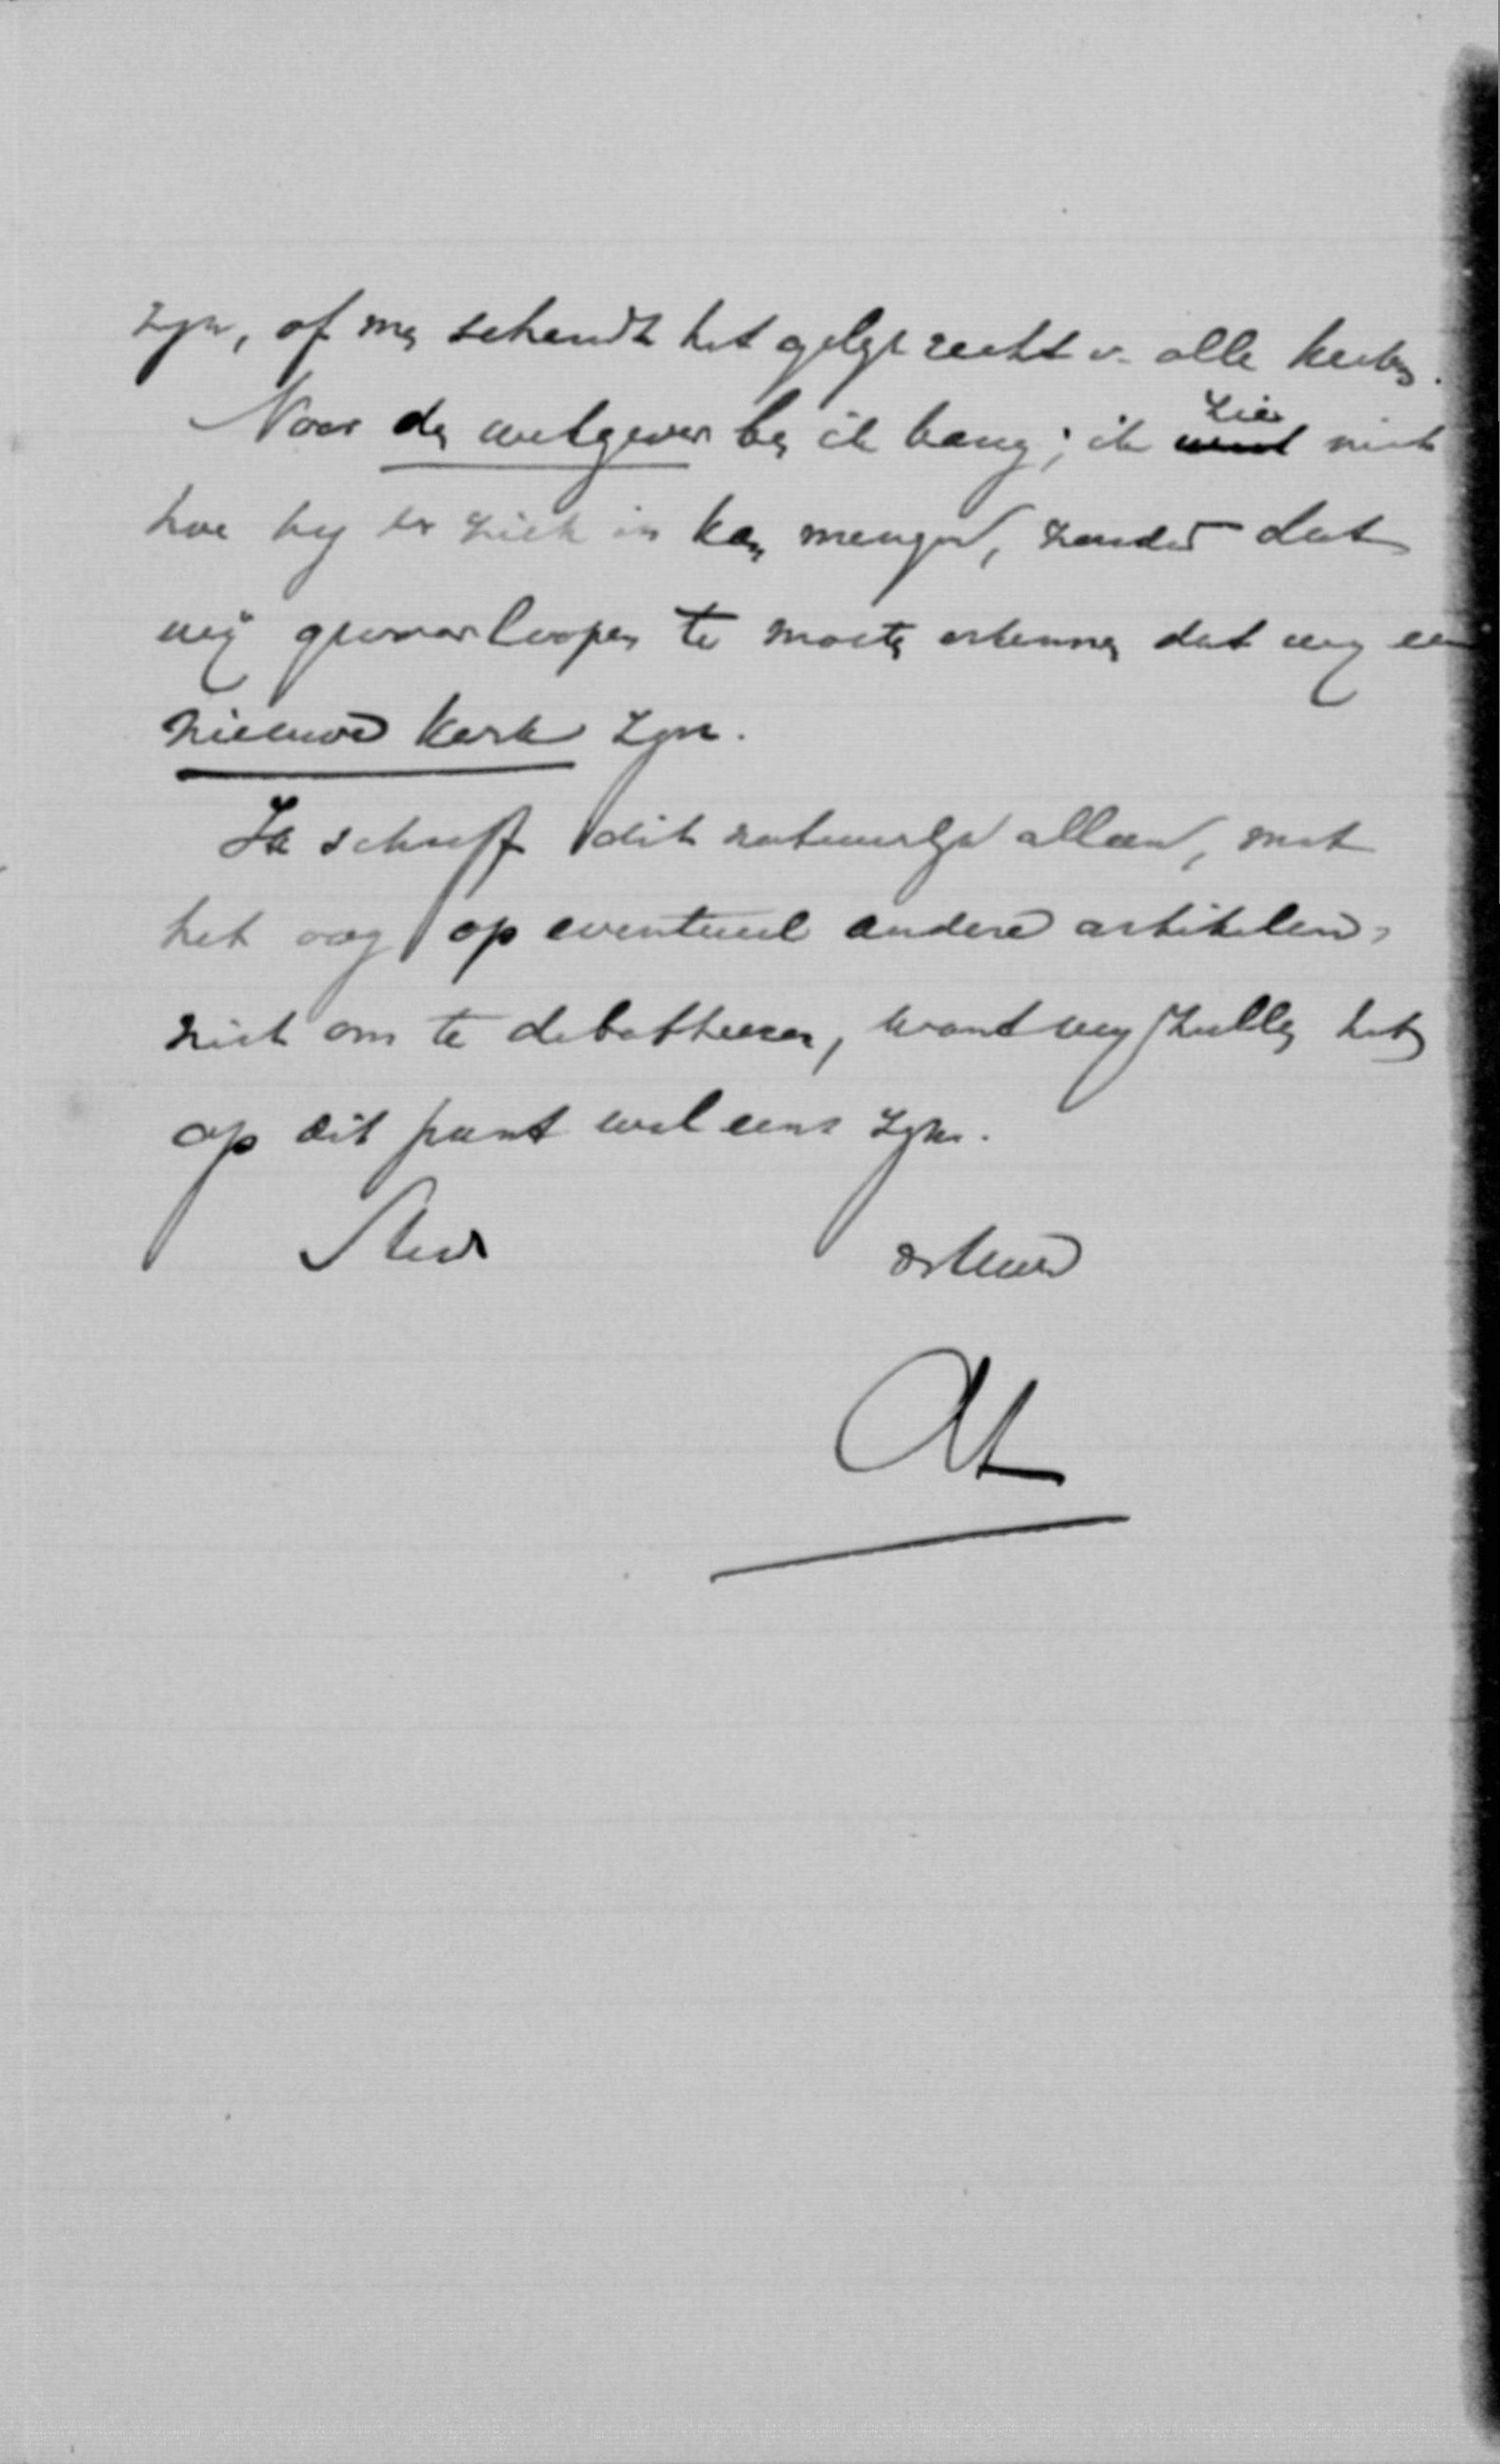 zyn, of men schendt het gelyk recht v. alle kerken.
Voor den wetgever ben ik bang; ik zie niet
hoe hy er zich in kan mengen, zonder dat
wij gevaar loopen te moeten erkennen dat wy een
nieuwe kerk zyn.
Ik schryf dit natuurlyk alleen, met
het oog op eventueel andere artikelen,
niet om te debatteeren, want wy zullen het
op dit punt wel eens zyn.